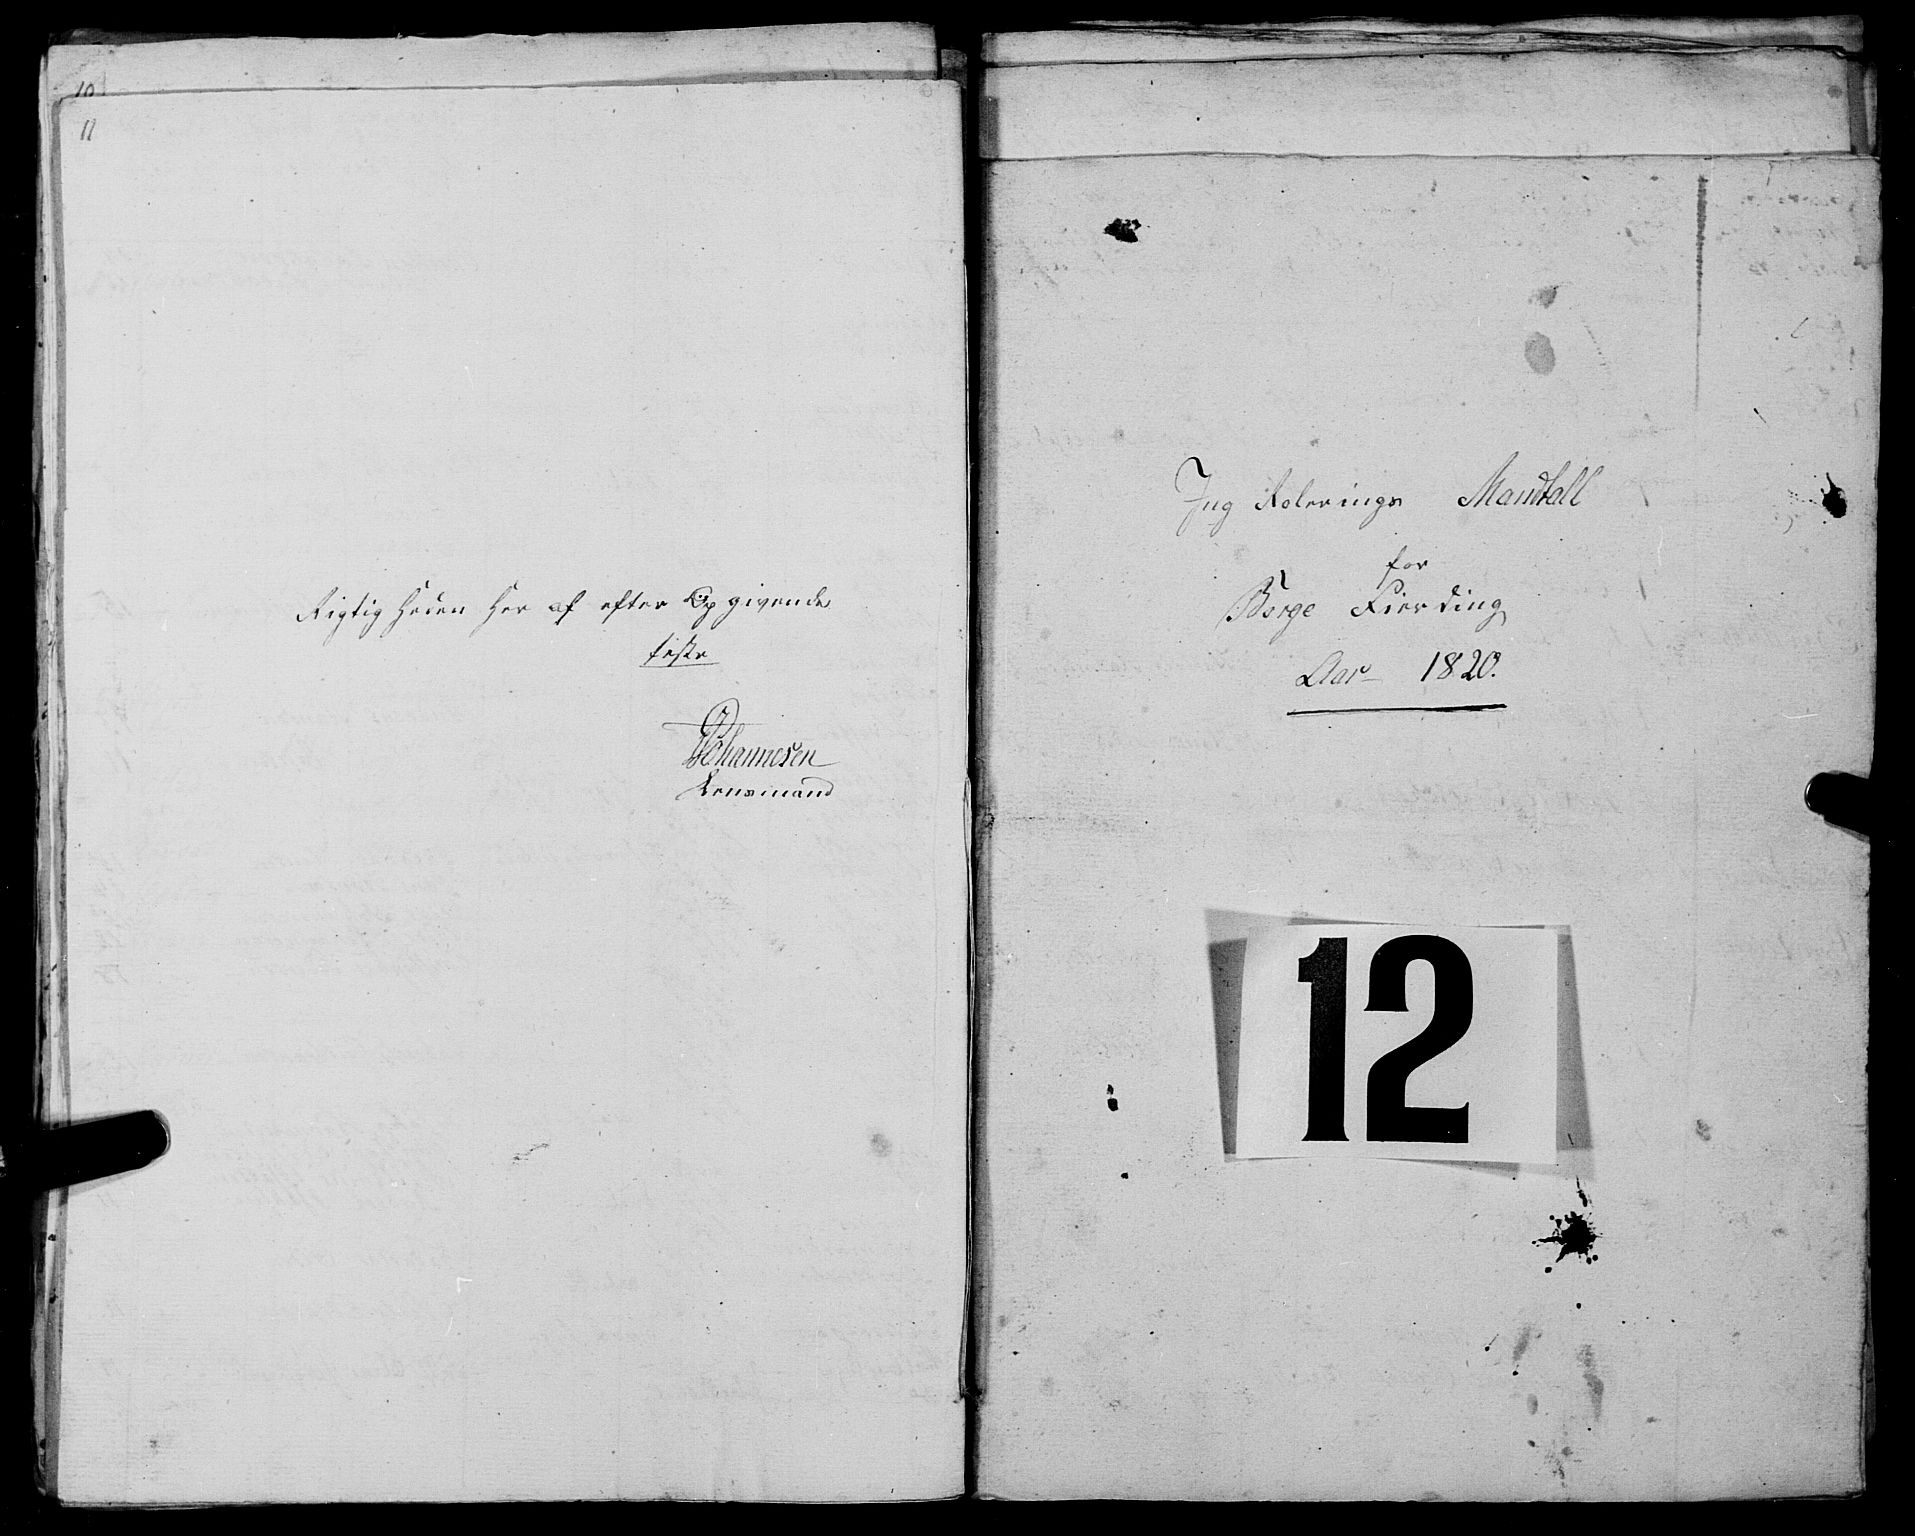 10
11
Rigtig heden her af efter Opgivende
teste
Johannesen
Lensmand
Jug Rolerings Mandtall
for
Borge Fierding
Aar 1820.
12